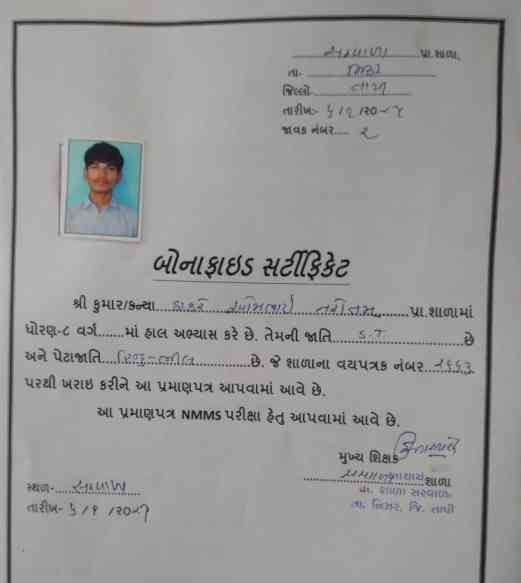 સરવાળા પ્રા.શાળા,
તા. નિઝર
જિલ્લો. તાપી
તારીખ:- ૬/૧/૨૦
જાવક નંબર..... ૨
બોનાફાઇડ સર્ટીફિકેટ
શ્રી કુમાર/કન્યા ઠાકરે પ્રા.શાળામાં
ધોરણ-૮ વર્ગ......માં હાલ અભ્યાસ કરે છે. તેમની જાતિ S.T છે
અને પેટાજાતિ હિન્દુ-ભીલ છે. જે શાળાના વયપત્રક નંબર ૨૧૬૩
પરથી ખરાઇ કરીને આ પ્રમાણપત્ર આપવામાં આવે છે.
આ પ્રમાણપત્ર NMMS પરીક્ષા હેતુ આપવામાં આવે છે.
મુખ્ય શિક્ષક
શાળા
પ્રા. શાળા સરવાળા
તા. નિઝર, જિ. તાપી
સ્થળ:- સરવાળા
તારીખ:- ૬/૧/૨૦